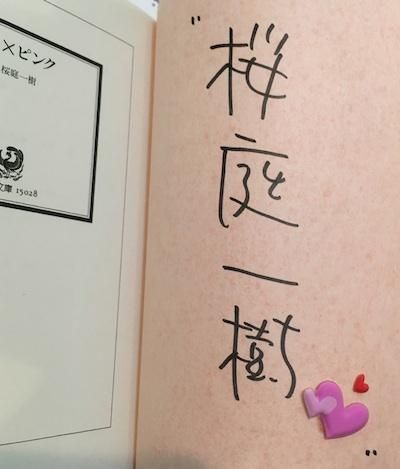 ×ピンク
桜庭一樹
文庫 15028
"桜庭一樹"